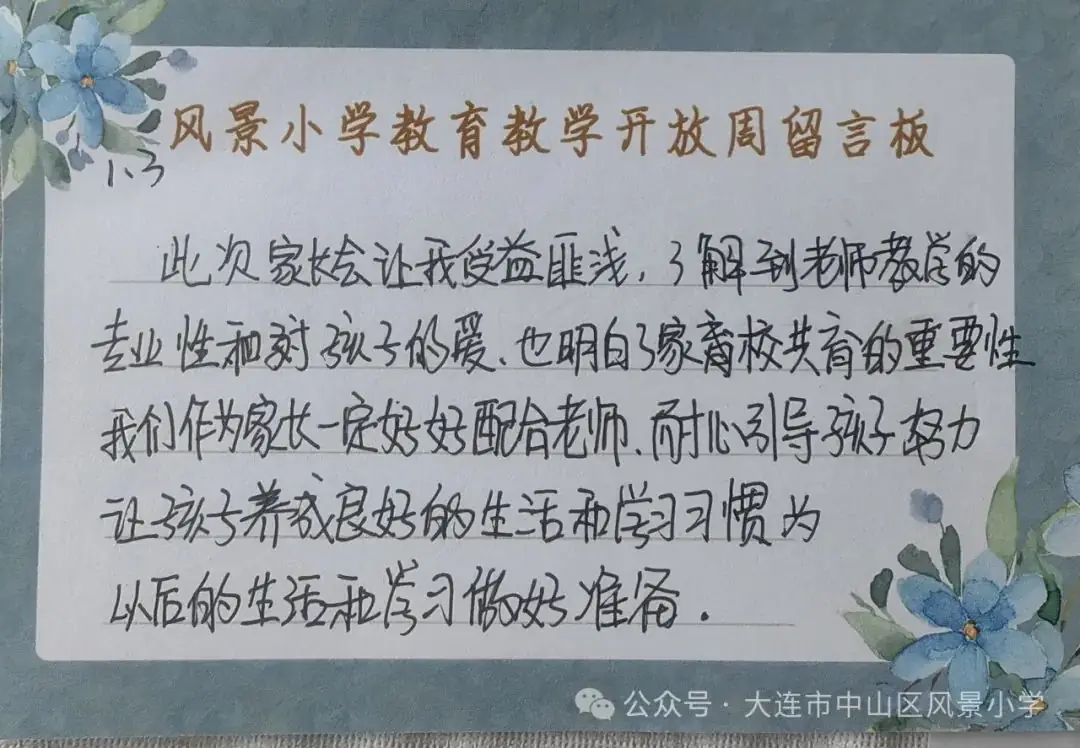 风景小学教育教学开放周留言板
1.3
此次家长会让我受益匪浅，了解到老师教学的
专业性和对孩子的爱、也明白了家育校共育的重要性
我们作为家长一定好好配合老师、耐心引导孩子努力
让孩子养成良好的生活和学习习惯为
以后的生活和学习做好准备.
公众号·大连市中山区风景小学